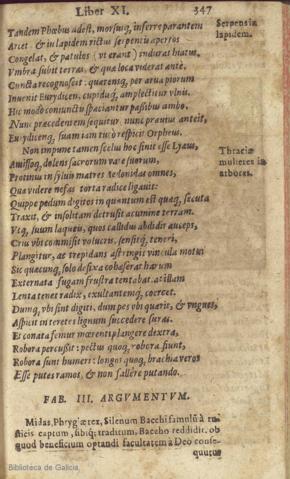 Liber XI. 347
Tandem Phœbus adest, morsusq, inferre parantem
Serpensin
lapidem.
Arcet, & in lapidem rictus serpentis apertos
Congelat, & patulos (vt erant) indurat hiatus,
Vmbra subit terras, & quæ loca viderat ante,
Cuncta recognoscit: quærensq, per arua piorum
Inuenit Eurydicen, cupidisq, amplectitur vlnis.
Hic modò coniunctis spaciantur passibus ambo,
Nunc præcedentem sequitur, nunc prauius anteit,
Eurydicenq, suam iam tutò respicit Orpheus.
Non impune tamen scelus hoc sinit esse Lyæus,
Thraciæ
mulieres in
arbores.
Amissoq, dolens sacrorum vate suorum,
Protinus in syluis matres Aedonidas omnes,
Quæ videre nefas torta radice ligauit:
Quippe pedum digitos in quantum est quæq, secuta
Traxit, & insolitam detrusit acumine terram.
Vtq, suum laqueis, quos callidus abdidit auceps,
Crus vbi commisit volucris, sensitq, teneri,
Plangitur, ac trepidans astringit vincula motu:
Sic quæcunq, solo defixa cohæserat harum
Externata fugam frustra tentabat. at illam
Lenta tenet radix, exultantemq, coercet.
Dumq, vbi sint digiti, dum pes vbi quærit, & vngues,
Aspicit in teretes lignum succedere suras.
Et conata femur mœrenti plangere dextra,
Robora percussit: pectus quoq, robora fiunt,
Robora sunt humeri: longos quoq, brachia veros
Esse putes ramos, & non fallêre putando.
FAB. III. ARGVMENTVM.
Midas, Phrygiæ rex, Silenum Bacchi famulũ à ru-
sticis captum, sibiq; traditum, Baccho reddidit. ob
quod beneficium optandi facultatem à Deo conse-
quutus
Biblioteca de Galicia